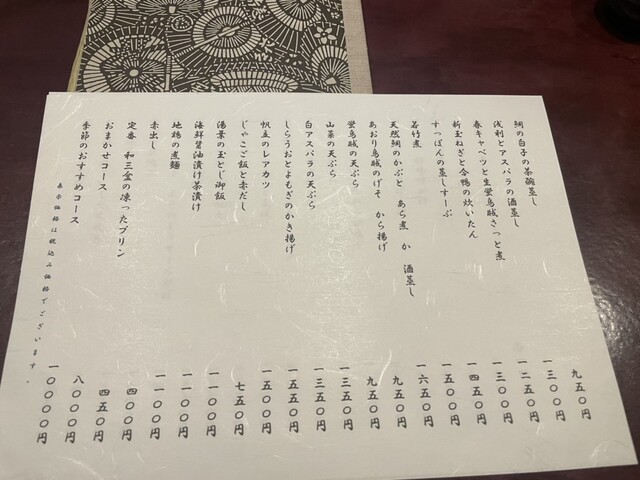 鯛の白子の茶碗蒸し 九五〇円
浅利とアスパラの酒蒸し 一三〇〇円
春キャベツと生蛍烏賊さっと煮 一二五〇円
新玉ねぎと合鴨の炊いたん 一三〇〇円
すっぽんの蒸しすーぷ 一四五〇円
若竹煮 一五〇〇円
天然鯛のかぶと あら煮 か 酒蒸し 一六五〇円
あおり烏賊のげそ から揚げ 九五〇円
蛍烏賊の天ぷら 九五〇円
山菜の天ぷら 一三五〇円
白アスパラの天ぷら 一三五〇円
しらうおとよもぎのかき揚げ 一五五〇円
帆立のレアカツ 一五〇〇円
じゃこご飯と赤だし 七五〇円
湯葉の玉とじ御飯 一一〇〇円
海鮮醤油漬け茶漬け 一一〇〇円
地鶏の煮麺 一一〇〇円
赤出し 四〇〇円
定番 和三盆の凍ったプリン 四五〇円
おまかせコース 八〇〇〇円
季節のおすすめコース 一〇〇〇〇円
表示価格は税込み価格でございます。